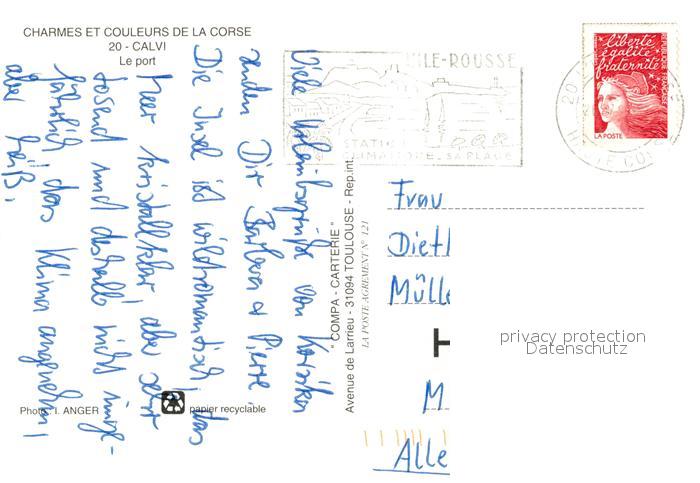 CHARMES ET COULEURS DE LA CORSE
20 - CALVI
Le port
Viele Urlaubsgrüße von Korsika
senden Dir Barbara & Pierre.
Die Insel ist wildromantisch, das
Meer kristallklar, aber sehr
tosend und deshalb nicht unge-
fährlich, das Klima angenehm,
aber heiß.
Photo : I. ANGER
papier recyclable
" COMPA - CARTERIE "
Avenue de Larrieu - 31094 TOULOUSE - Rep.int.
LA POSTE AGREMENT N° 121
L'ILE-ROUSSE
SA PLAGE
liberté
égalité
fraternité
RÉPUBLIQUE FRANÇAISE
LA POSTE
20
HAUTE CO
Frau
Dietl
Mülle
M
Alle
privacy protection
Datenschutz